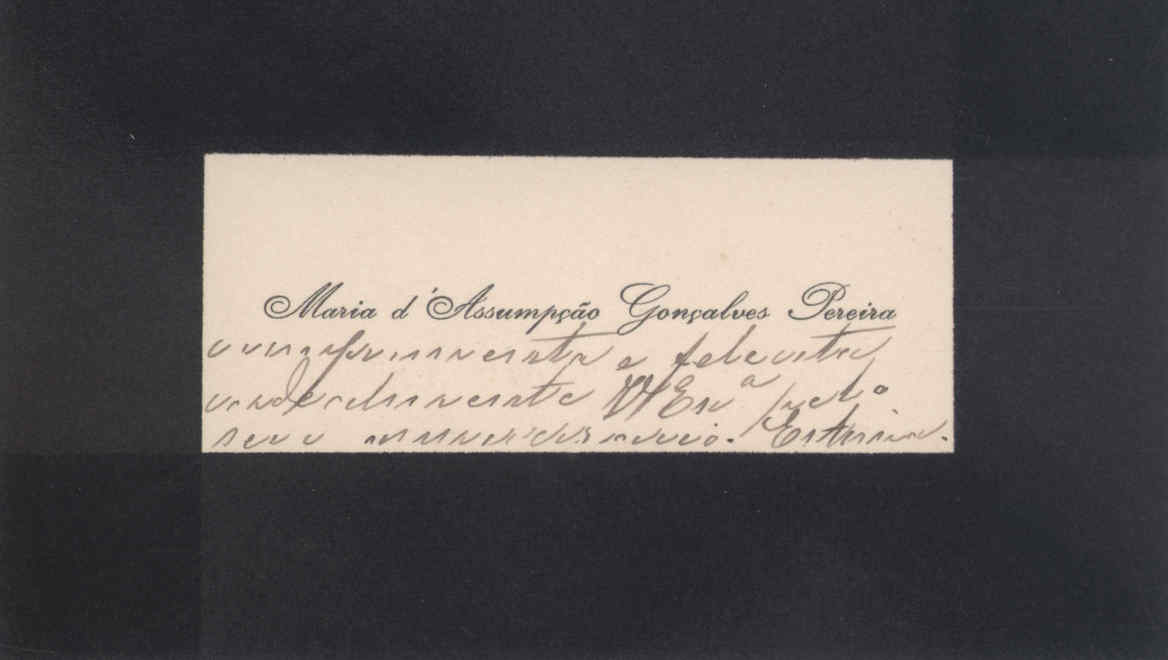 Maria d'Assumpção Gonçalves Pereira
cumprimenta e felecita
cordealmente V Exª pelo
seu anniversario.